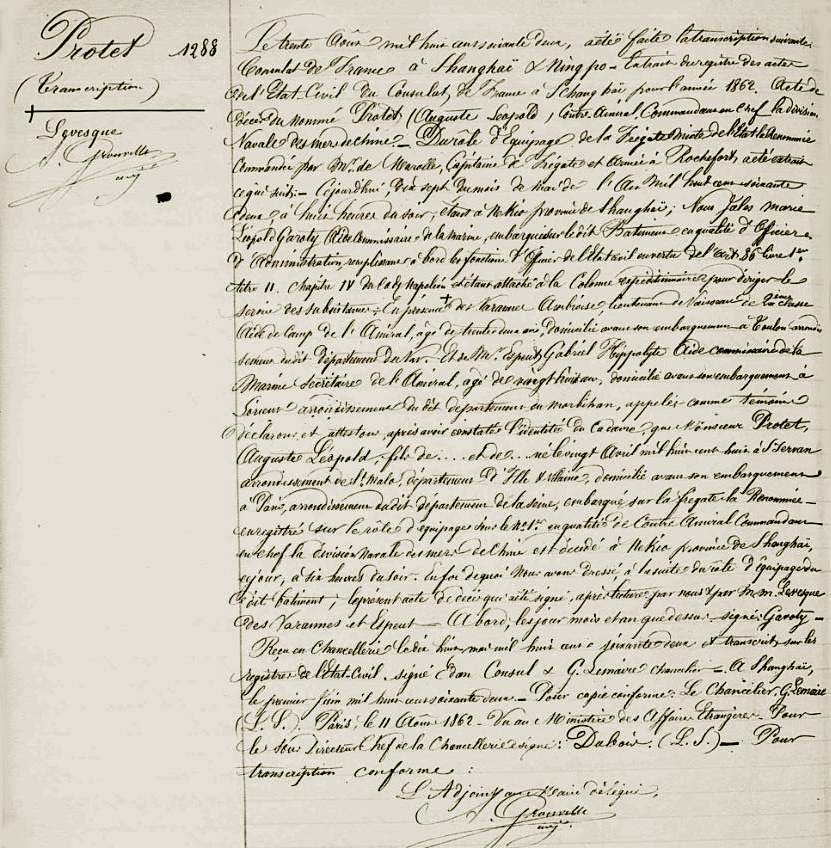 Protet 1288
(Transcription)
Levesque
A. Grouvelle
adj.
Le trente Août mil huit cent soixante deux, a été faite la transcription suivante:
Consulat de France à Shanghaï & Ningpo - Extrait du registre des actes
de l'Etat Civil du Consulat de France à Shang haï pour l'année 1862. Acte de
décès du nommé Protet (Auguste Léopold), Contre Amiral, Commandant en chef la division
Navale des mers de chine. - Du rôle d'Equipage de la Frégate mixte de l'Etat la Renommée
Commandée par Mr. de Marolle, Capitaine de Frégate et Armée à Rochefort, a été extrait
ce qui suit: - Cejourd'hui dix sept du mois de mai de l'An Mil huit cent soixante
deux, à huit heures du soir, étant à Né Kio province de Shanghaï; Nous Jules marie
Léopold Garoty Aide Commissaire de la marine, embarqué sur le dit Bâtiment en qualité d'Officier
d'Administration, remplissant à bord les fonctions d'Officier de l'Etat civil en vertu de l'art. 86 livre 1er
titre II, chapitre IV du Code Napoléon et étant attaché à la Colonne expéditionnaire pour diriger le
service des subsistances; En présence + des Varannes Ambroise, lieutenant de Vaisseau de 2ème classe
Aide de Camp de l'Amiral, âgé de trente deux ans, domicilié avant son embarquement à Toulon arrondis
sement du dit département du Var. Et de Mr. Espeut Gabriel Hippolyte Aide commissaire de la
Marine Secrétaire de l'Amiral, âgé de vingt huit ans, domicilié avant son embarquement à
Lorient arrondissement du dit département du morbihan, appelés comme témoins
déclarons et attestons, après avoir constaté l'identité du Cadavre, que Monsieur Protet,
Auguste Léopold, fils de .... et de .. né le vingt Avril mil huit cent huit à St Servan
arrondissement de St. Malo, département d'Ille & vilaine, domicilié avant son embarquement
à Paris, arrondissement dudit département de la seine, embarqué sur la frégate la Renommée
enregistré sur le rôle d'équipage sous le No. 1er en qualité de Contre Amiral Commandant
en chef la division Navale des mers de Chine est décédé à Né Kio province de Shanghaï,
ce jour, à six heures du soir. En foi de quoi Nous avons dressé, à la suite du rôle d'équipage du
dit bâtiment, le présent acte de décès qui a été signé, après lecture par nous & par M.M. Levesque
des Varannes et Espeut - A bord, les jour mois et an que dessus. signé: Garoty -
Reçu en Chancellerie le dix huit mai mil huit cent soixante deux & transcrit sur les
registres de l'Etat-Civil. signé Edan Consul & G. Lemaire chancelier - A Shanghaï,
le premier Juin mil huit cent soixante deux. - Pour copie conforme: Le Chancelier, G. Lemaire
(L. S.). Paris, le 11 Août 1862 - Vu au Ministère des Affaires Etrangères - Pour
le Sous Directeur Chef de la Chancellerie signé: Dubois. (L. S.) - Pour
transcription conforme :
L'Adjoint au Maire délégué,
A. Grouvelle
adj.